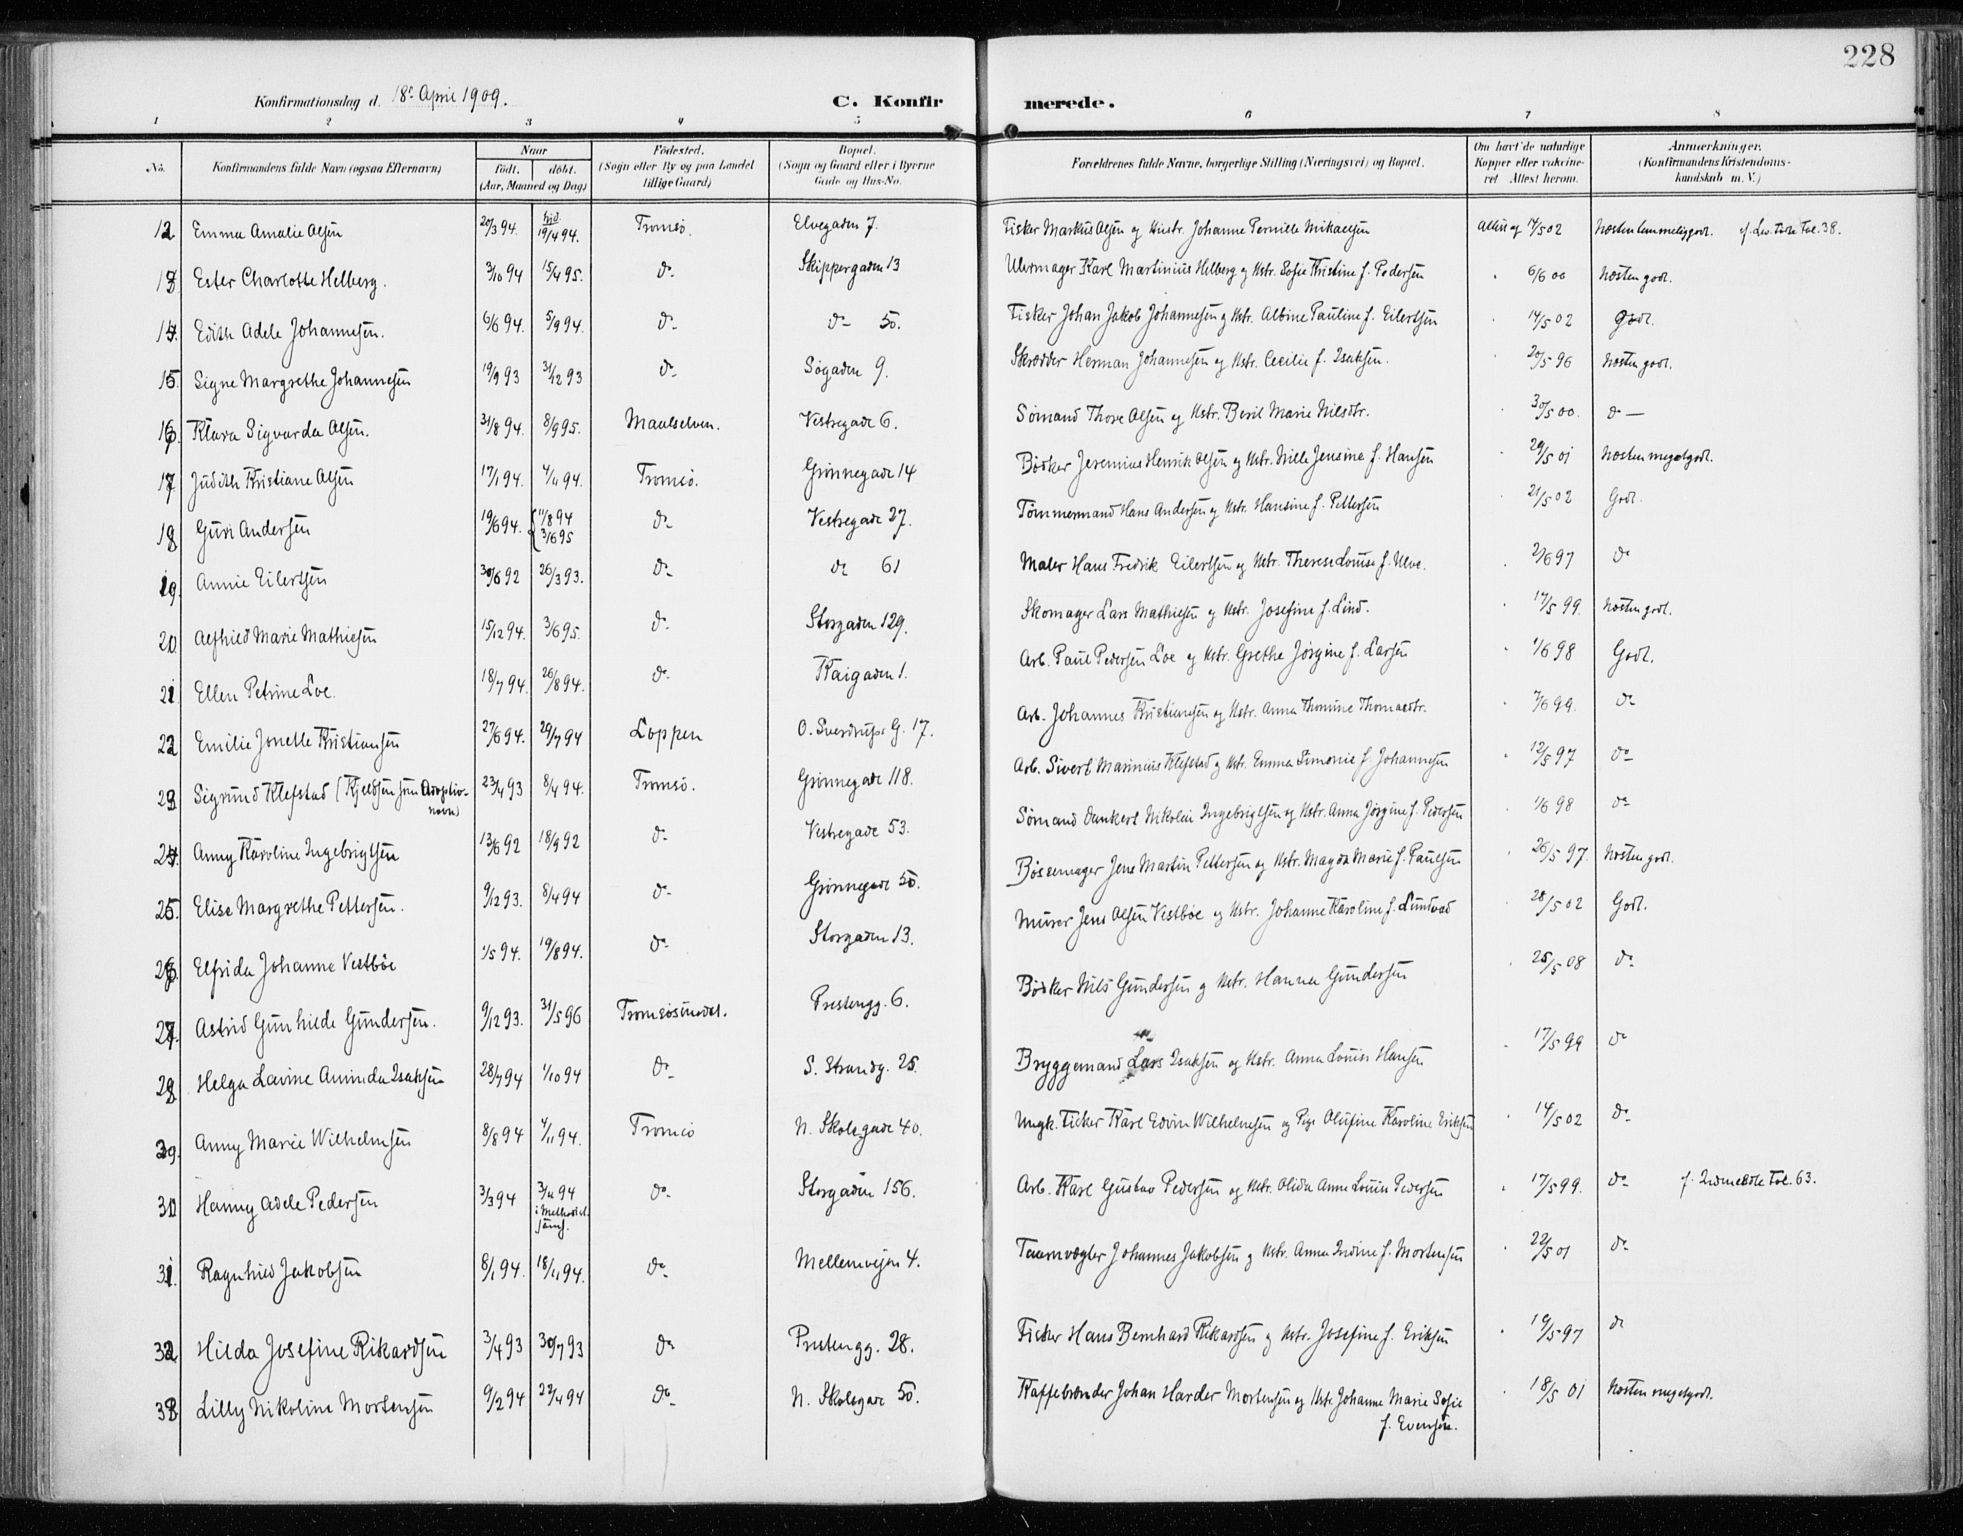 228
Konfirmationsdag d. 18de April 1909. C. Konfirmerede.
1 2 3 4 5 6 7 8
No. Konfirmandens fulde Navn (ogsaa Efternavn) Naar født. døbt. (Aar, Maaned og Dag) Fødested. (Sogn eller By og paa Landet tillige Gaard) Bopæl. (Sogn og Gaard eller i Byerne Gade og Hus-No. Forældrenes fulde Navne, borgerlige Stilling (Næringsvei) og Bopæl. Om havt de naturlige Kopper eller vakcineret Attest herom. Anmerkninger. (Konfirmandens Kristendomskundskab m. V.)
12 Emma Amalie Olsen 20/3 94. 19/4 94. Tromsø. Elvegaden 7. Fisker Markus Olsen og Hustr. Johanne Pernille Mikaelsen 14/5 02 Næsten temmelig godt. Fol. 38.
13 Ester Charlotte Helberg. 3/10 94 15/4 95. do Skippergaden 13 Uhrmager Karl Martinius Helberg og Hstr. Sofie Kristine f. Pedersen 6/6 00 Næsten godt.
14. Edith Adele Johannesen. 6/6 94. 5/9 94. do do 50. Fisker Johan Jakob Johannesen og Hstr. Albine Pauline f. Eilertsen 14/5 02 Godt.
15. Signe Margrethe Johannesen 19/9 93 31/12 93 do Søgaden 9. Skrædder Herman Johannesen og Hstr. Cecilie f. Isaksen. 20/5 96 Næsten godt.
16 Klara Sigvarda Olsen. 31/8 94. 8/9 95. Maalselven. Vestregade 6. Sømand Thore Olsen og Hstr. Beril Marie Nilsdtr. 30/5 00. do
17 Judith Kristiane Olsen 17/1 94. 4/11 94. Tromsø. Grønnegade 14 Bødker Jeremias Henrik Olsen og Hstr. Nille Jensine f. Hansen 29/5 01 Næsten meget godt.
18 Guri Andersen 19/6 94. 11/8 94 3/6 95 do Vestregade 27. Tømmermand Hans Andersen og Hstr. Hansine f. Pettersen 21/5 02 Godt.
19. Annie Eilertsen 30/6 92 26/3 93. do do 61 Maler Hans Fredrik Eilertsen og Hstr. Therese Louise f. Ulve. 2/6 97 do
20 Alfhild Marie Mathiesen 15/12 94. 3/6 95. do Storgaden 129. Skomager Lars Mathiesen og Hstr. Josefine f. Lind. 17/5 99. Næsten godt.
21 Ellen Petrine Loe. 18/7 94. 26/8 94. do Kaigaden 1. Arb. Paul Pedersen Loe og Hstr. Grethe Jørgine f. Larsen 1/6 98 Godt.
22 Emilie Jonette Kristiansen 27/6 94. 29/7 94 Loppen O. Sverdrups G. 17. Arb. Johannes Kristiansen og Hstr. Anna Thomine Thomasdtr. 7/6 99. do
23 Sigrund Klefstad (Kjeldsen Adoptivnavn) 23/4 93 8/4 94. Tromsø. Grønnegade 118. Arb. Sivert Marinius Klefstad og Hstr. Emma Simonie f. Johannesen 12/5 97 do
24. Anny Karoline Ingebrigtsen 13/6 92 18/9 92 do Vestregade 53. Sømand Dankert Nikolai Ingebrigtsen og Hstr. Anna Jørgine f. Pedersen 1/6 98 do
25. Elise Margrethe Pettersen. 9/12 93. 8/4 94 do Grønnegade 50. Bøssemager Jens Martin Pettersen og Hstr. Magda Marie f. Paulsen 26/5 97. Næsten godt.
26. Elfrida Johanne Vestbøe 1/5 94. 19/8 94. do Storgaden 13. Murer Jens Olsen Vestbøe og Hstr. Johanne Karoline f. Lundvad 28/5 02 Godt.
27. Astrid Gunhilde Gundersen. 9/12 93. 31/5 96 Tromsøsundet. Prestengg. 6. Bødker Nils Gundersen og Hstr. Hanna Gundersen 25/5 08 do
28 Helga Lavine Aminda Isaksen 28/7 94 1/10 94 do S. Strandg. 25. Bryggemand Lars Isaksen og Hstr. Anna Louise Hansen 17/5 99 do
29. Anny Marie Wilhelmsen 8/8 94 4/11 94. Tromsø N. Skolegade 40. Ungk. Fisker Karl Edvin Wilhelmsen og Pige Olufine Karoline Eriksen 14/5 02 do
30 Hanny Adele Pedersen 3/3 94 3/11 94 i Methodist do Storgaden 156. Arb. Karl Gustav Pedersen og Hstr. Olida Anna Louise Pedersen 17/5 99. do f. Indmeldte Fol. 63.
31. Ragnhild Jakobsen 8/1 94. 18/11 94. do Mellemveien 4. Taarnvægter Johannes Jakobsen og Hstr. Anna Indine f. Mortensen 22/5 01 do
32 Hilda Josefine Rikardsen 3/4 93 30/7 93 do Prestengg. 28. Fisker Hans Bernhard Rikardsen og Hstr. Josefine f. Eriksen 19/5 97 do
33. Lilly Nikoline Mortensen 9/2 94 22/4 94 do N. Skolegade 50. Kaffebrænder Johan Harder Mortensen og Hstr. Johanne Marie Sofie f. Evensen. 18/5 01 Næsten meget godt.